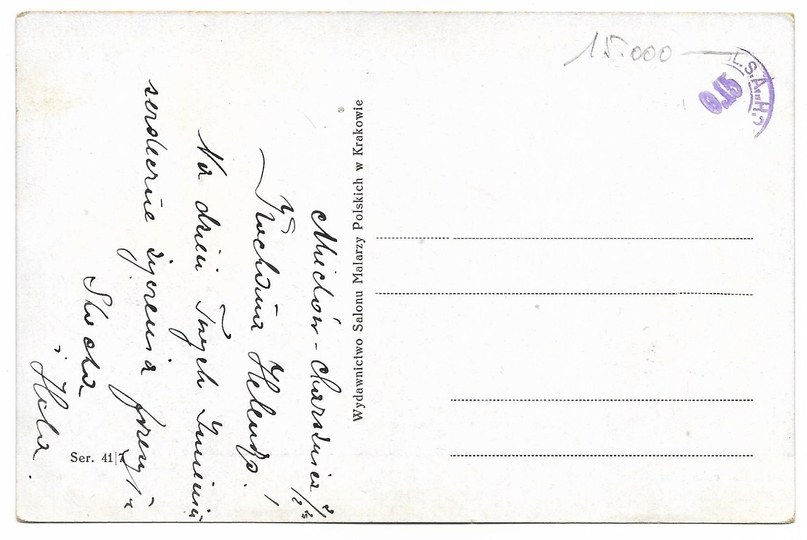 15.000
L.S.A
0.15
Wydawnictwo Salonu Malarzy Polskich w Krakowie
Miechów-Charsznica
Kochana Helenko!
Na dzień Twych Imienin
serdeczne życzenia przesyła
Stacha
i Hela.
Ser. 41/7